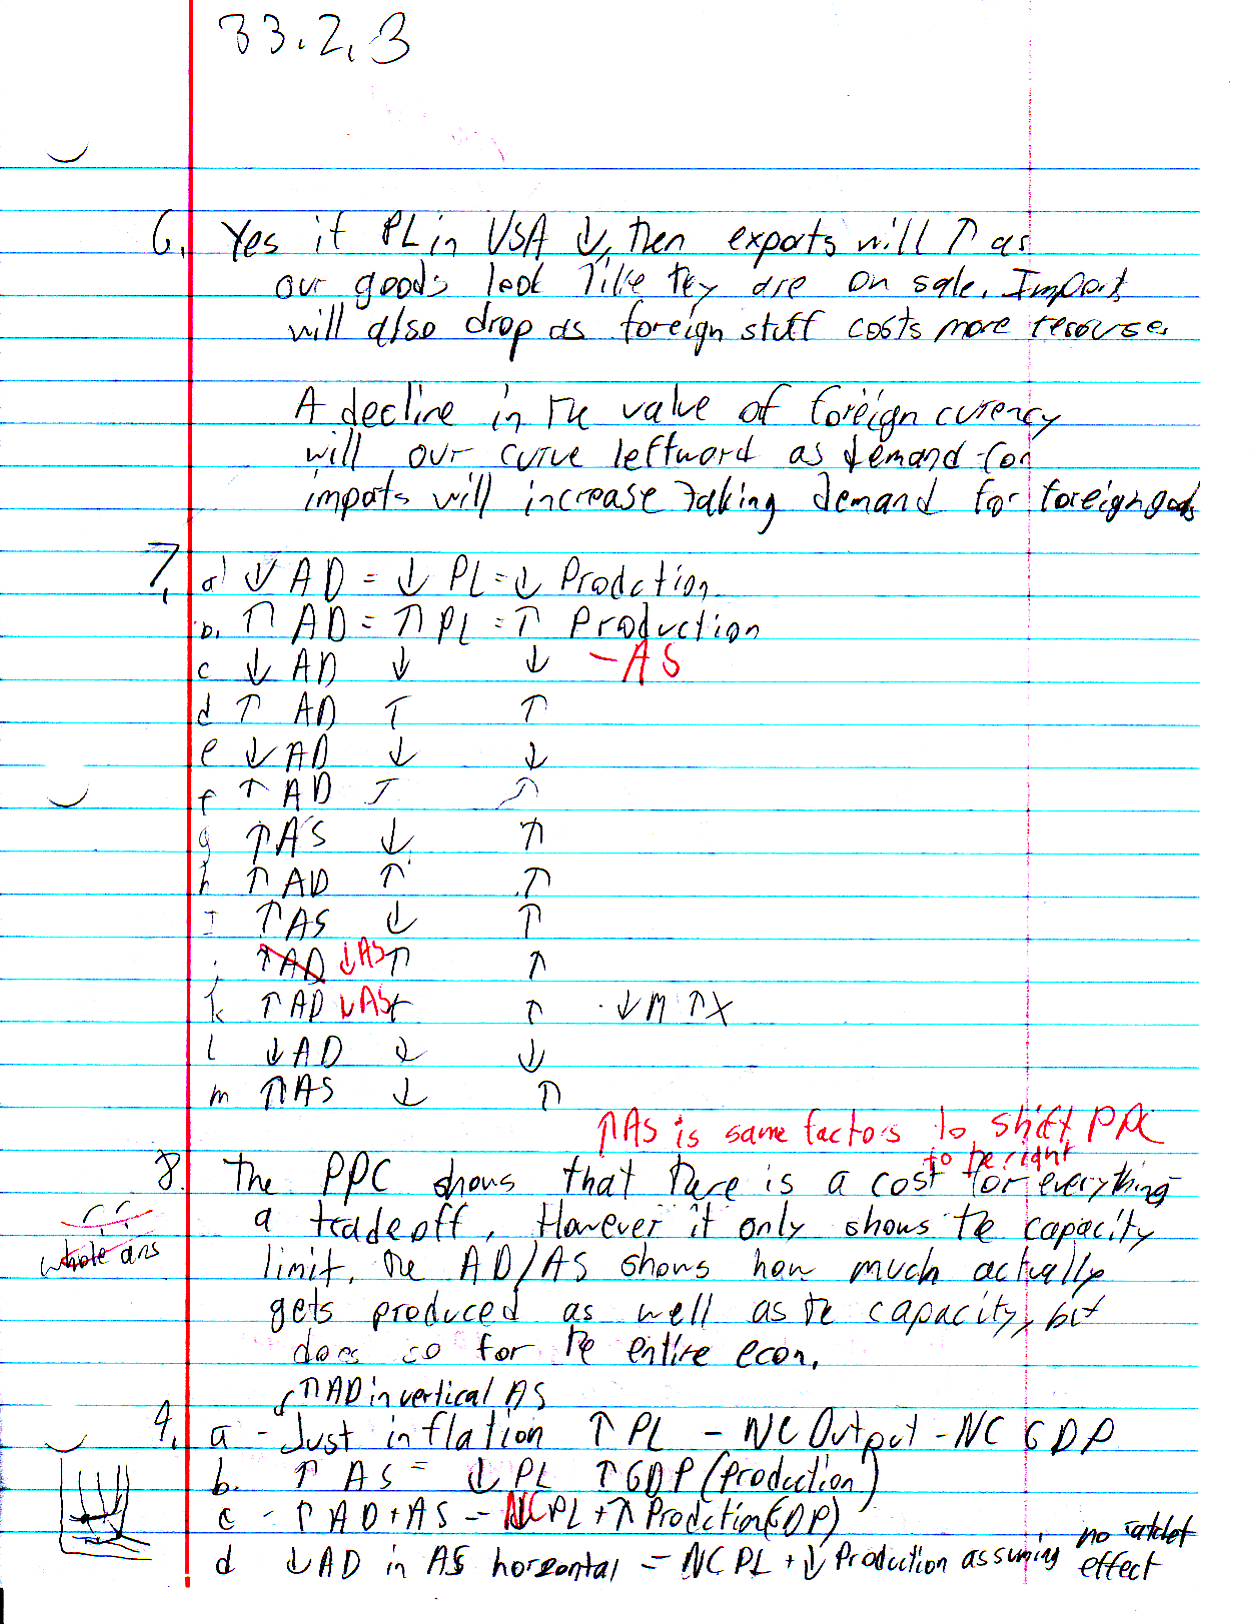 33.2.3
6. Yes if PL in USA ↓, then exports will ↑ as
our goods look like they are on sale. Imports
will also drop as foreign stuff costs more resourses
A decline in the value of foreign curency
will our curve leftward as demand for
imports will increase taking demand for foreign goods
7. a) ↓ AD = ↓ PL = ↓ Prodction
b. ↑ AD = ↑ PL = ↑ Production
c ↓ AD ↓ ↓ - AS
d ↑ AD ↑ ↑
e ↓ AD ↓ ↓
f ↑ AD ↑ ↑
g ↑ AS ↓ ↑
h ↑ AD ↑ ↑
I ↑ AS ↓ ↑
j ↑ AD ↓ AS ↑ ↑
k ↑ AD ↓ AS ↑ ↑ ↓ M ↑ X
l ↓ AD ↓ ↓
m ↑ AS ↓ ↑
↑ AS is same factors to shift PPC
to the right
8. The PPC shows that there is a cost for everything
a tradeoff. However it only shows the capacity
whole ans
limit. The AD/AS shows how much actually
gets produced as well as the capacity, but
does so for the entire econ.
↑ AD in vertical AS
9. a - Just inflation ↑ PL - NC Output - NC GDP
b. ↑ AS = ↓ PL ↑ GDP (production)
c - ↑ AD + AS - NC PL + ↑ Prodction (GDP)
d ↓ AD in AS horzontal = NC PL + ↓ Production assuming no ratchet
effect